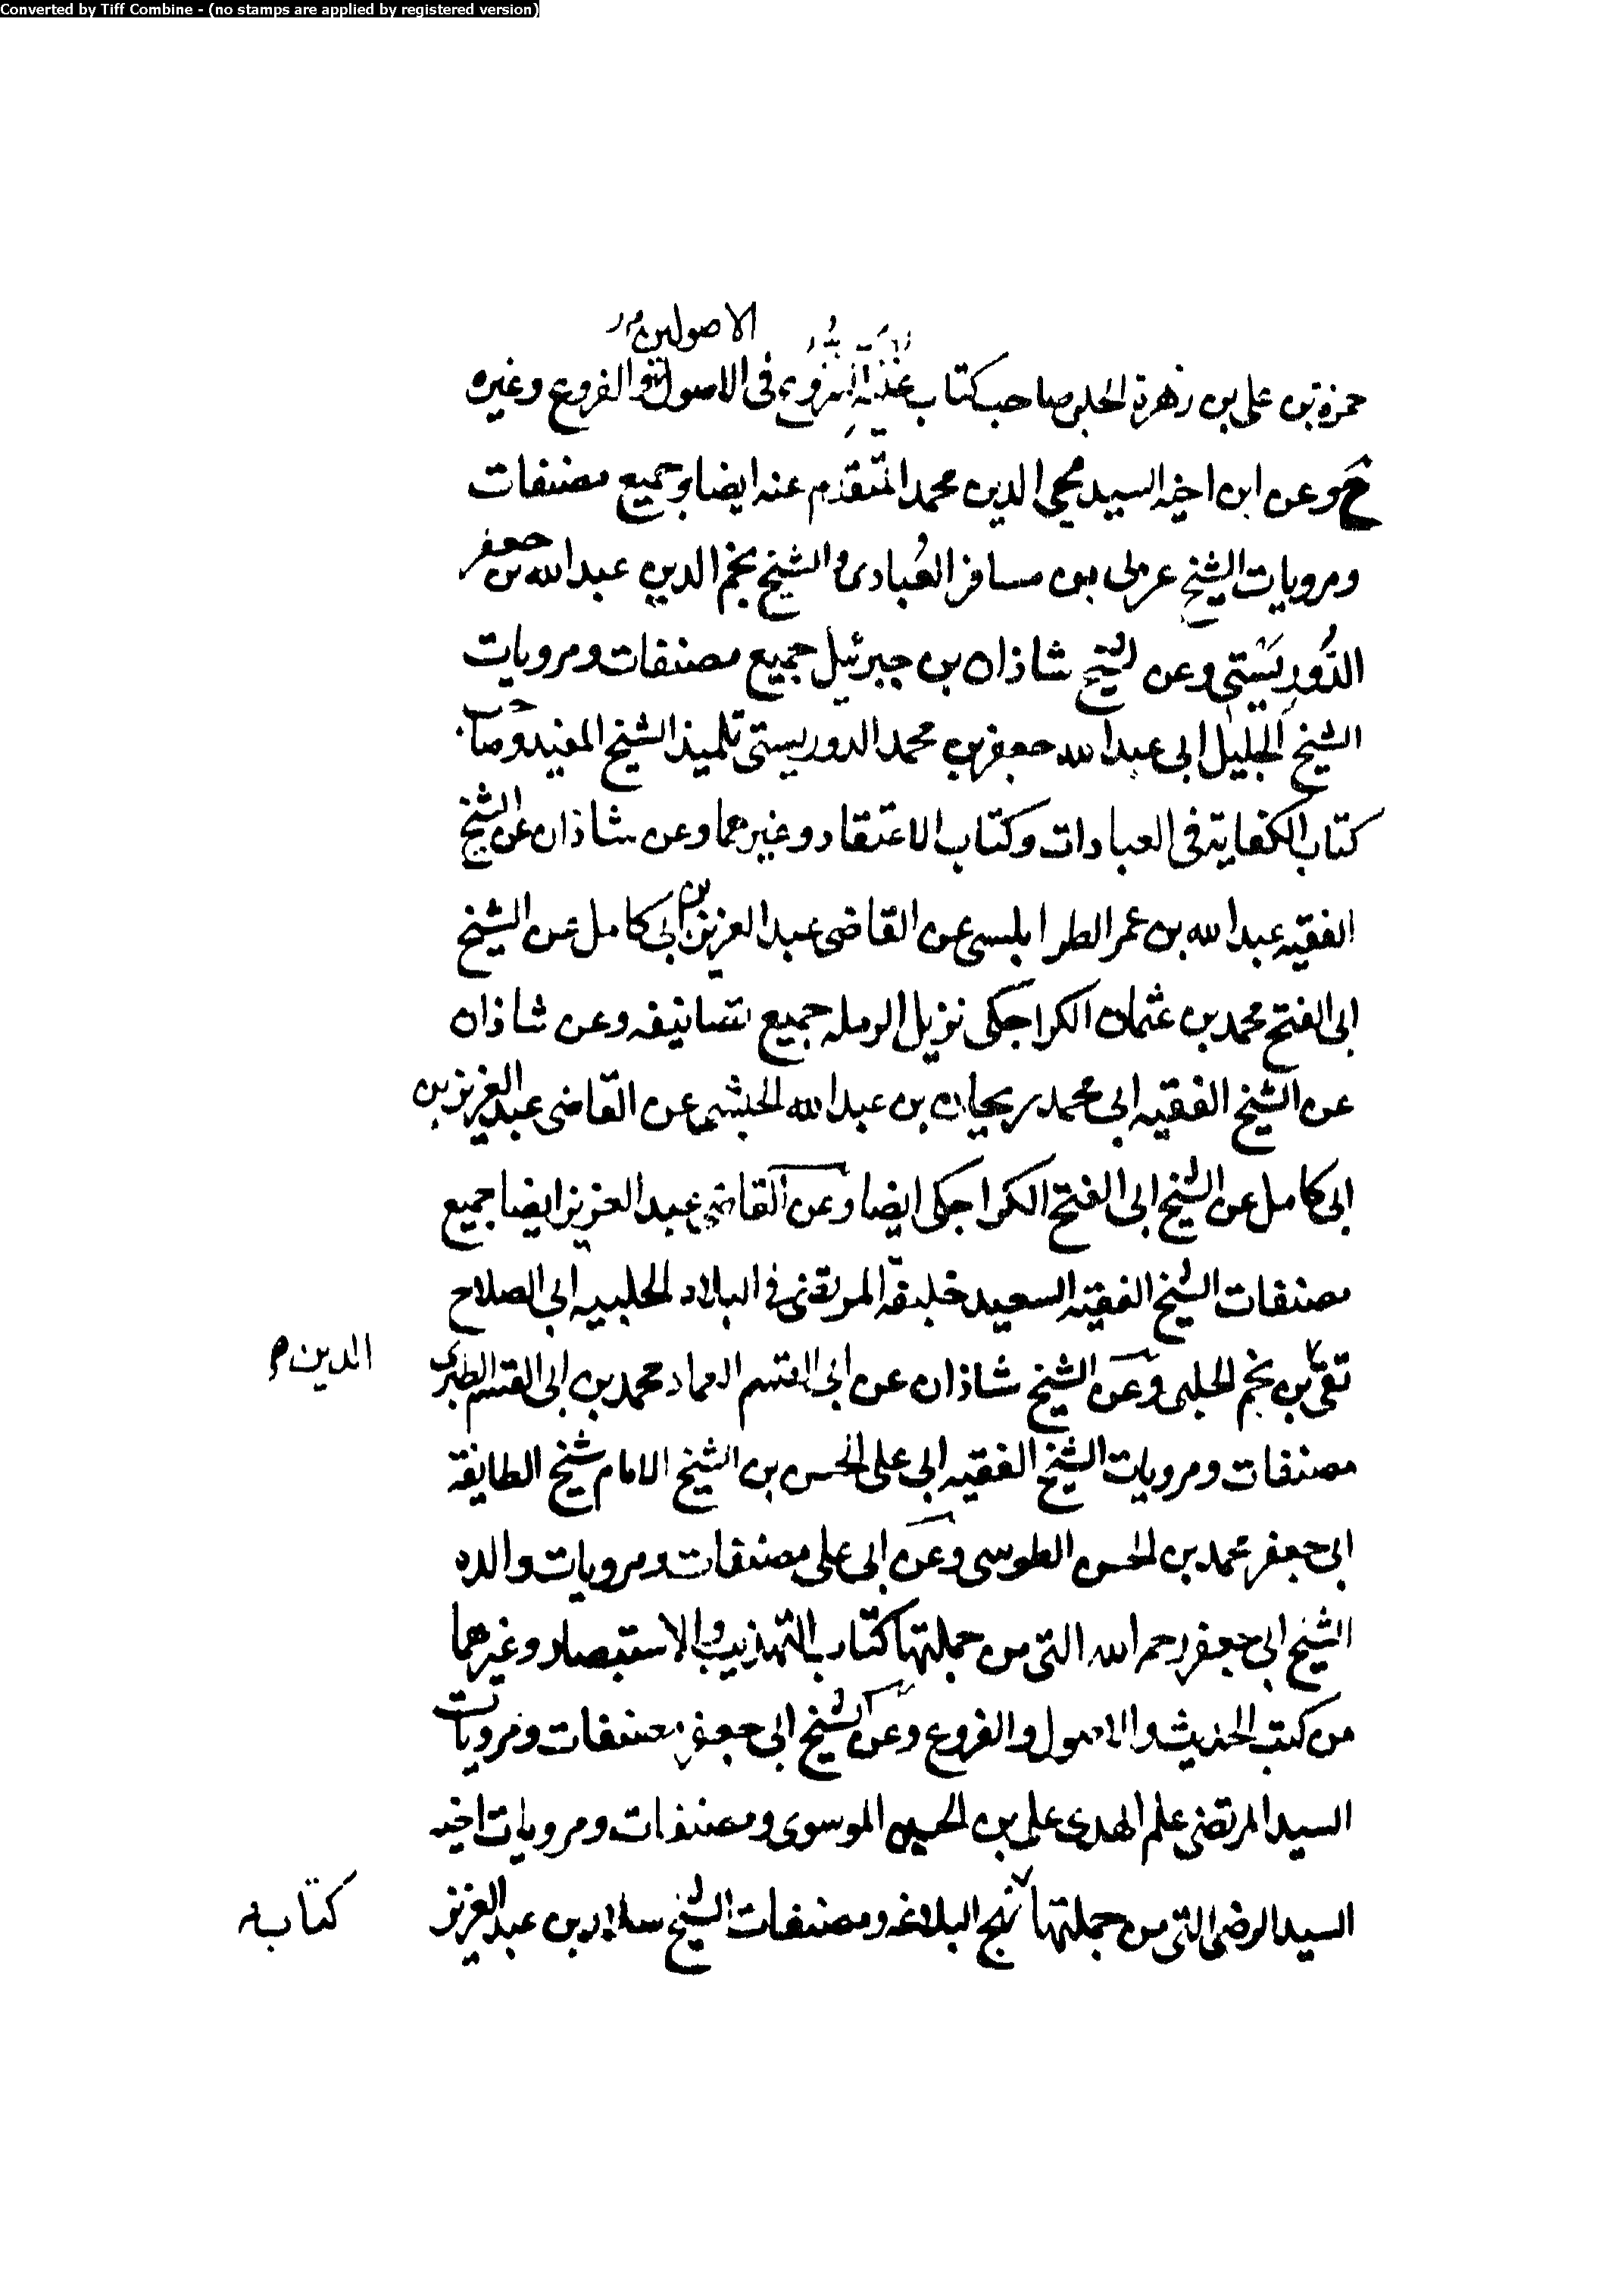 Converted by Tiff Combine - (no stamps are applied by registered version)
الاصولين
حمزة بن على بن زهرة الحلبى صاحب كتاب غنية النزوع فى الاصول والفروع وغيره
وعن ابن اخيه السيد محيى الدين محمد المتقدم عنه ايضا وجميع مصنفات
ومرويات الشيخ عربى بن مسافر العُبادى والشيخ نجم الدين عبدالله بن جعفر
الدُّورِيَسْتى وعن الشيخ شاذان بن جبرئيل جميع مصنفات ومرويات
الشيخ الجليل ابى عبدالله جعفر بن محمد الدوريستى تلميذ الشيخ المفيد وصاحب
كتاب الكفاية فى العبادات وكتاب الاعتقاد وغيرهما وعن شاذان عن الشيخ
الفقيه عبدالله بن عمر الطرابلسى عن القاضى عبدالعزيز بن ابى كامل عن الشيخ
ابى الفتح محمد بن عثمان الكراجكى نزيل الرمله جميع تصانيفه وعن شاذان
عن الشيخ الفقيه ابى محمد ريحان بن عبدالله الحبشى عن القاضى عبدالعزيز بن
ابى كامل عن الشيخ ابى الفتح الكراجكى ايضا وعن القاضى عبدالعزيز ايضا جميع
مصنفات الشيخ الفقيه السعيد خليفة المرتضى فى البلاد الحلبيه ابى الصلاح
تقى بن نجم الحلبى وعن الشيخ شاذان عن ابى القسم العماد محمد بن ابى القسم الطبرى
الدين
مصنفات ومرويات الشيخ الفقيه ابى على الحسن بن الشيخ الامام شيخ الطايفة
ابى جعفر محمد بن الحسن الطوسى وعن ابى على مصنفات ومرويات والده
الشيخ ابى جعفر رحمه الله التى من جملتها كتاب التهذيب والاستبصار وغيرهما
من كتب الحديث والاصول والفروع وعن الشيخ ابى جعفر مصنفات ومرويات
السيد المرتضى علم الهدى على بن الحسين الموسوى ومصنفات ومرويات اخيه
السيد الرضى التى من جملتها نهج البلاغه ومصنفات الشيخ سلار بن عبدالعزيز
كتاب